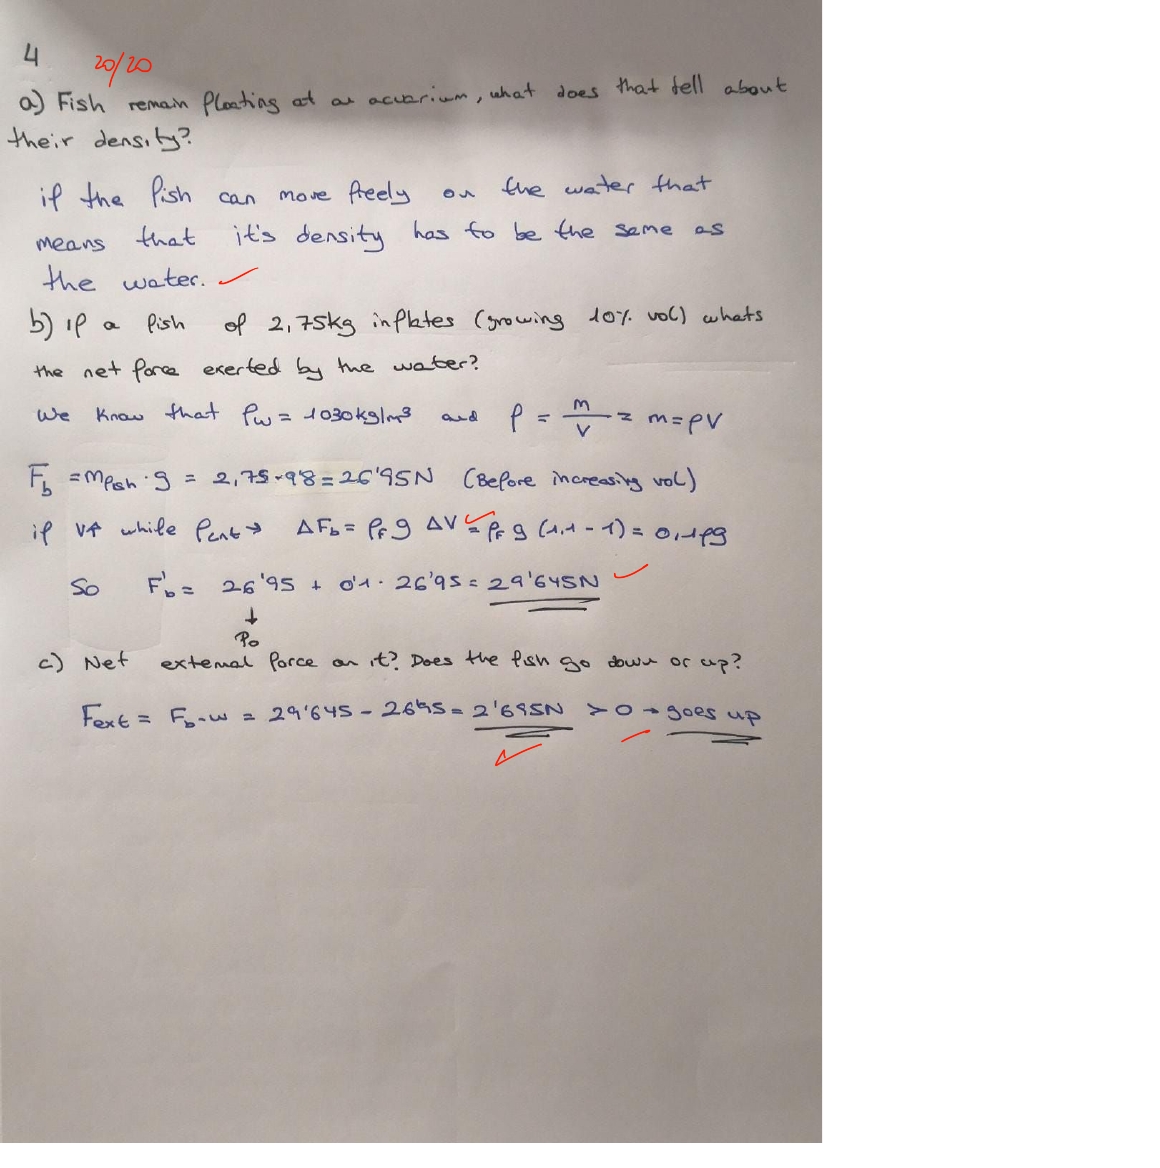 4
20/20
a) Fish remain floating at an acuarium, what does that tell about
their density?
if the fish can move freely on the water that
means that it's density has to be the same as
the water.
b) if a fish of 2,75kg inflates (growing 10% vol) whats
the net force exerted by the water?
We know that ρw = 1030kg/m³ and ρ = m/V = m=ρV
Fb = mfish · g = 2,75·9'8 = 26'95N (Before increasing vol)
if V↑ while ρcnt → ΔFb = ρf g ΔV = ρf g (1,1 - 1) = 0,1ρg
So F'b = 26'95 + 0'1 · 26'95 = 29'645N
↓
P₀
c) Net external force on it? Does the fish go down or up?
Fext = Fb-w = 29'645 - 26'95 = 2'695N > 0 → goes up